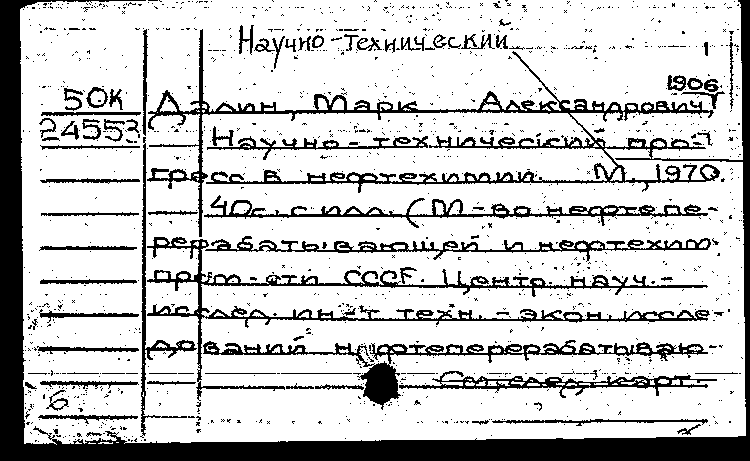 Научно-технический
1
1906
50К Далин, Марк Александрович,
24553 Научно-технический про-
гресс в нефтехимии. М., 1970.
40с. с илл. (М-во нефтепе-
рерабатывающей и нефтехим.
пром-сти СССР. Центр. науч.-
исслед. ин-т техн.-экон. иссле-
дований нефтеперерабатываю-
См. след. карт.
б